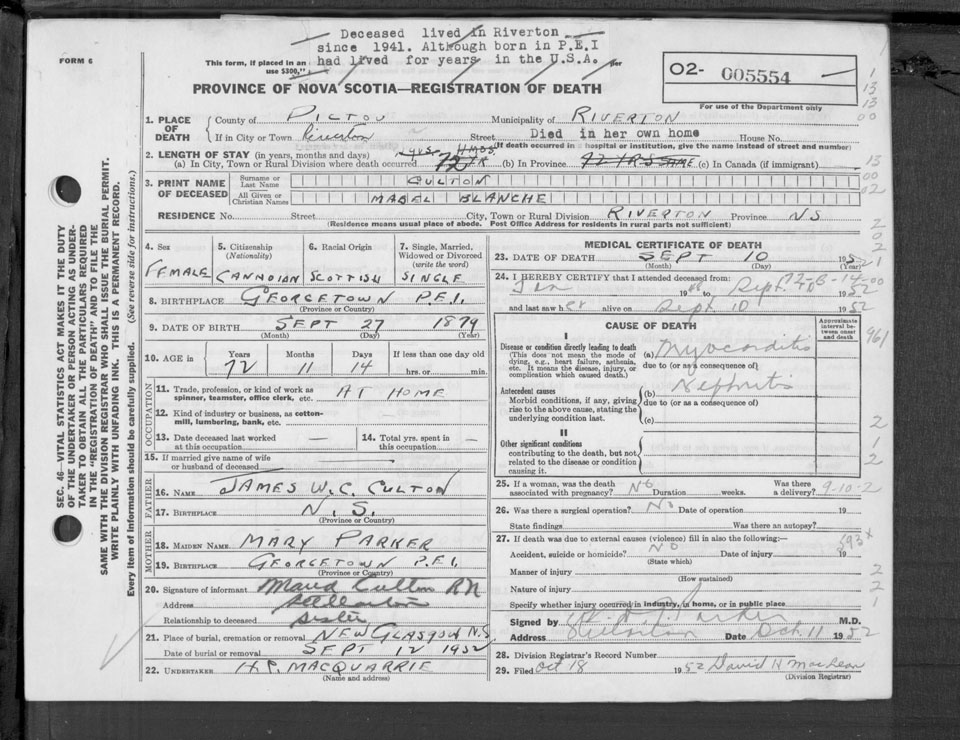 Deceased lived in Riverton
since 1941. Although born in P.E.I
had lived for years in the U.S.A.
FORM 6
This form, if placed in an
use $300,"
O2- 005554
PROVINCE OF NOVA SCOTIA—REGISTRATION OF DEATH
For use of the Department only
1. PLACE OF DEATH
County of PICTOU Municipality of RIVERTON
If in City or Town Riverton Street Died in her own home House No.
(If death occurred in a hospital or institution, give the name instead of street and number)
2. LENGTH OF STAY (in years, months and days)
(a) In City, Town or Rural Division where death occurred 72 YR (b) In Province 72 YRS SAME (c) In Canada (if immigrant)
3. PRINT NAME OF DECEASED
Surname or Last Name CULTON
All Given or Christian Names MABEL BLANCHE
RESIDENCE No. Street City, Town or Rural Division RIVERTON Province N.S
(Residence means usual place of abode. Post Office Address for residents in rural parts not sufficient)
4. Sex FEMALE
5. Citizenship (Nationality) CANADIAN
6. Racial Origin SCOTTISH
7. Single, Married, Widowed or Divorced (write the word) SINGLE
8. BIRTHPLACE GEORGETOWN P.E.I.
(Province or Country)
9. DATE OF BIRTH SEPT 27 1879
(Month) (Day) (Year)
10. AGE in Years 72 Months 11 Days 14 If less than one day old hrs. or min.
OCCUPATION
11. Trade, profession, or kind of work as spinner, teamster, office clerk, etc. AT HOME
12. Kind of industry or business, as cotton-mill, lumbering, bank, etc. —
13. Date deceased last worked at this occupation —
14. Total yrs. spent in this occupation —
15. If married give name of wife or husband of deceased —
FATHER
16. NAME JAMES W.C. CULTON
17. BIRTHPLACE N.S.
(Province or Country)
MOTHER
18. MAIDEN NAME MARY PARKER
19. BIRTHPLACE GEORGETOWN P.E.I.
(Province or Country)
20. Signature of informant Maud Culton RN
Address Stellarton
Relationship to deceased sister
21. Place of burial, cremation or removal NEW GLASGOW N.S
Date of burial or removal SEPT 12 1952
22. UNDERTAKER H.P. MACQUARRIE
(Name and address)
MEDICAL CERTIFICATE OF DEATH
23. DATE OF DEATH SEPT 10 195
(Month) (Day) (Year)
24. I HEREBY CERTIFY that I attended deceased from:
Jan 19 to Sept. 1952
and last saw her alive on Sept 10 1952
CAUSE OF DEATH
Approximate interval between onset and death
I
Disease or condition directly leading to death
(This does not mean the mode of dying, e.g., heart failure, asthenia, etc. It means the disease, injury, or complication which caused death.)
(a) Myocarditis
due to (or as a consequence of)
Antecedent causes
Morbid conditions, if any, giving rise to the above cause, stating the underlying condition last.
(b) Nephritis
due to (or as a consequence of)
(c)
II
Other significant conditions
contributing to the death, but not related to the disease or condition causing it.
25. If a woman, was the death associated with pregnancy? No Duration weeks. Was there a delivery? 9-10-2
26. Was there a surgical operation? No Date of operation 19
State findings Was there an autopsy?
27. If death was due to external causes (violence) fill in also the following:—
Accident, suicide or homicide? No Date of injury 19
(State which)
Manner of injury
(How sustained)
Nature of injury
Specify whether injury occurred in industry, in home, or in public place
Signed by Parker M.D.
Address Stellarton Date Oct. 11 1952
28. Division Registrar's Record Number
29. Filed Oct 18 1952 David H MacLean
(Division Registrar)
SEC. 46 VITAL STATISTICS ACT MAKES IT THE DUTY
OF THE UNDERTAKER OR PERSON ACTING AS UNDER-
TAKER TO OBTAIN ALL THE PARTICULARS REQUIRED
IN THE "REGISTRATION OF DEATH" AND TO FILE THE
SAME WITH THE DIVISION REGISTRAR WHO SHALL ISSUE THE BURIAL PERMIT.
WRITE PLAINLY WITH UNFADING INK. THIS IS A PERMANENT RECORD.
Every item of information should be carefully supplied. (See reverse side for instructions.)